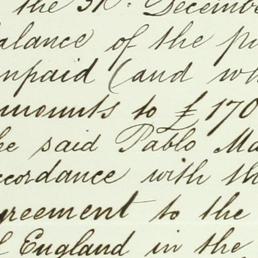 the 31st December
balance of the pu
unpaid (and wh
amounts to £170
he said Pablo Ma
ccordance with th
greement to the
f England in the